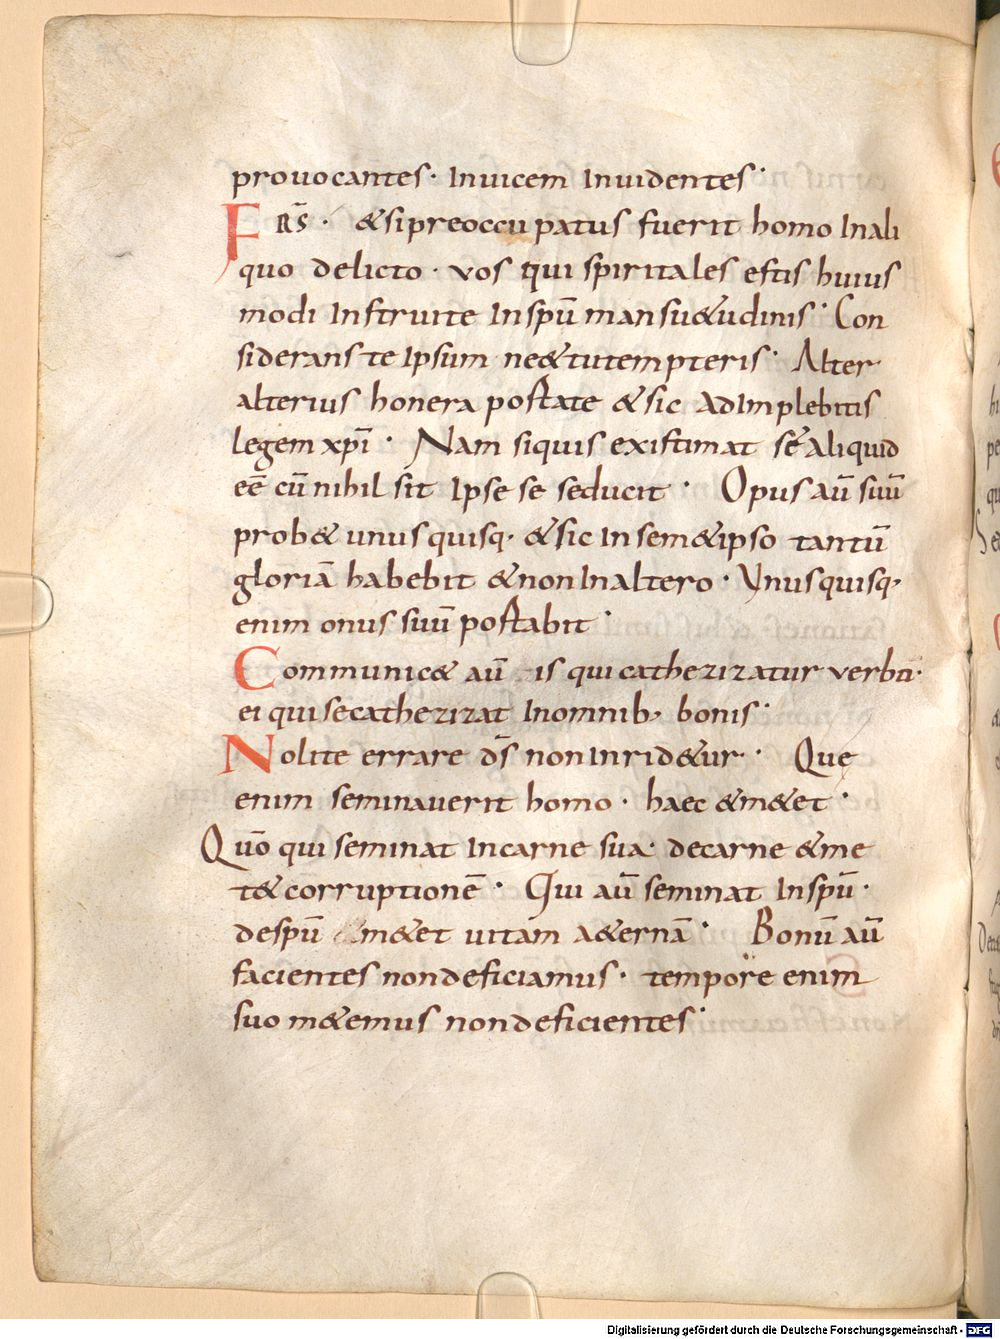 prouocantes · Inuicem Inuidentes ·
FRS̄ · &si preoccupatus fuerit homo Inali
quo delicto · vos qui spiritales estis huius
modi Instruite In spū mansu&udinis · Con
siderans te Ipsum ne&tu tempteris · Alter
alterius honera portate &sic AdImplebitis
legem xp̄i · Nam siquis existimat sē Aliquid
eē cū nihil sit Ipse se seducit · Opus aū suū
prob& unus quisq· &sic In sem&ipso tantū
gloriā habebit &non Inaltero · Vnusquisq·
enim onus suū portabit ·
Communic& aū is qui cathezizatur verbū·
ei qui se cathezizat Inomnib; bonis ·
Nolite errare ds̄ non Inrid&ur · Que
enim seminauerit homo · haec &m&et ·
Quō qui seminat Incarne sua · decarne &me
t& corruptionē · Qui aū seminat Inspū ·
despū &m&et uitam a&ernā · Bonū aū
facientes non deficiamus · tempore enim
suo m&emus non deficientes ·
Digitalisierung gefördert durch die Deutsche Forschungsgemeinschaft - DFG